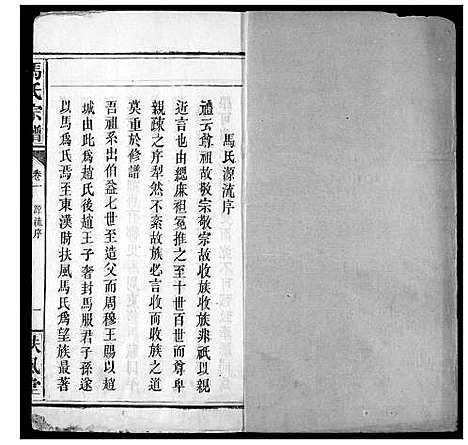 馬氏源流序
禮云尊祖故敬宗敬宗故收族收族非祇以親
近言也由緦麻祖免推之至十世百世而尊卑
親疎之序犁然不紊故族必言收而收族之道
莫重於修譜
吾祖系出伯益七世至造父而周穆王賜以趙
城由此為趙氏後趙王子奢封馬服君子孫遂
以馬為氏焉至東漢時扶風馬氏為望族最著
馬氏宗譜
卷一
源流序
一
扶風堂